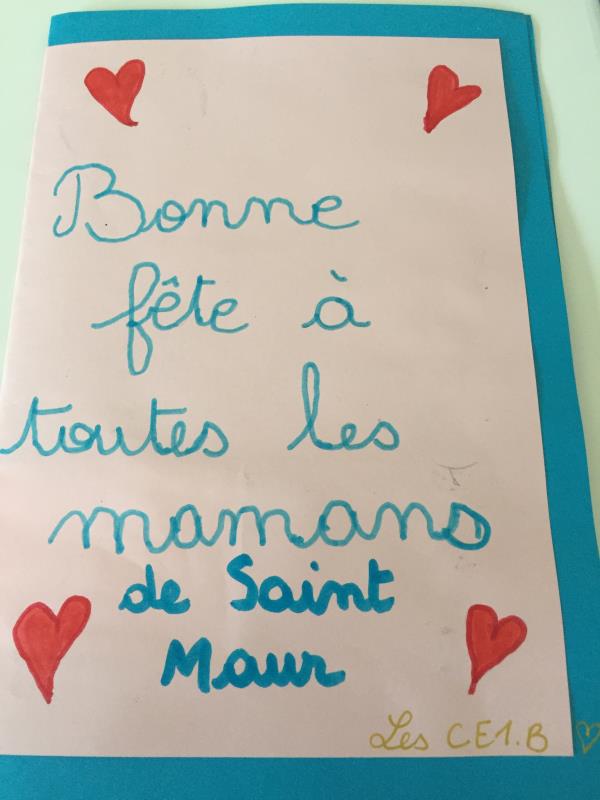 Bonne
fête à
toutes les
mamans
de Saint
Maur
Les CE1.B